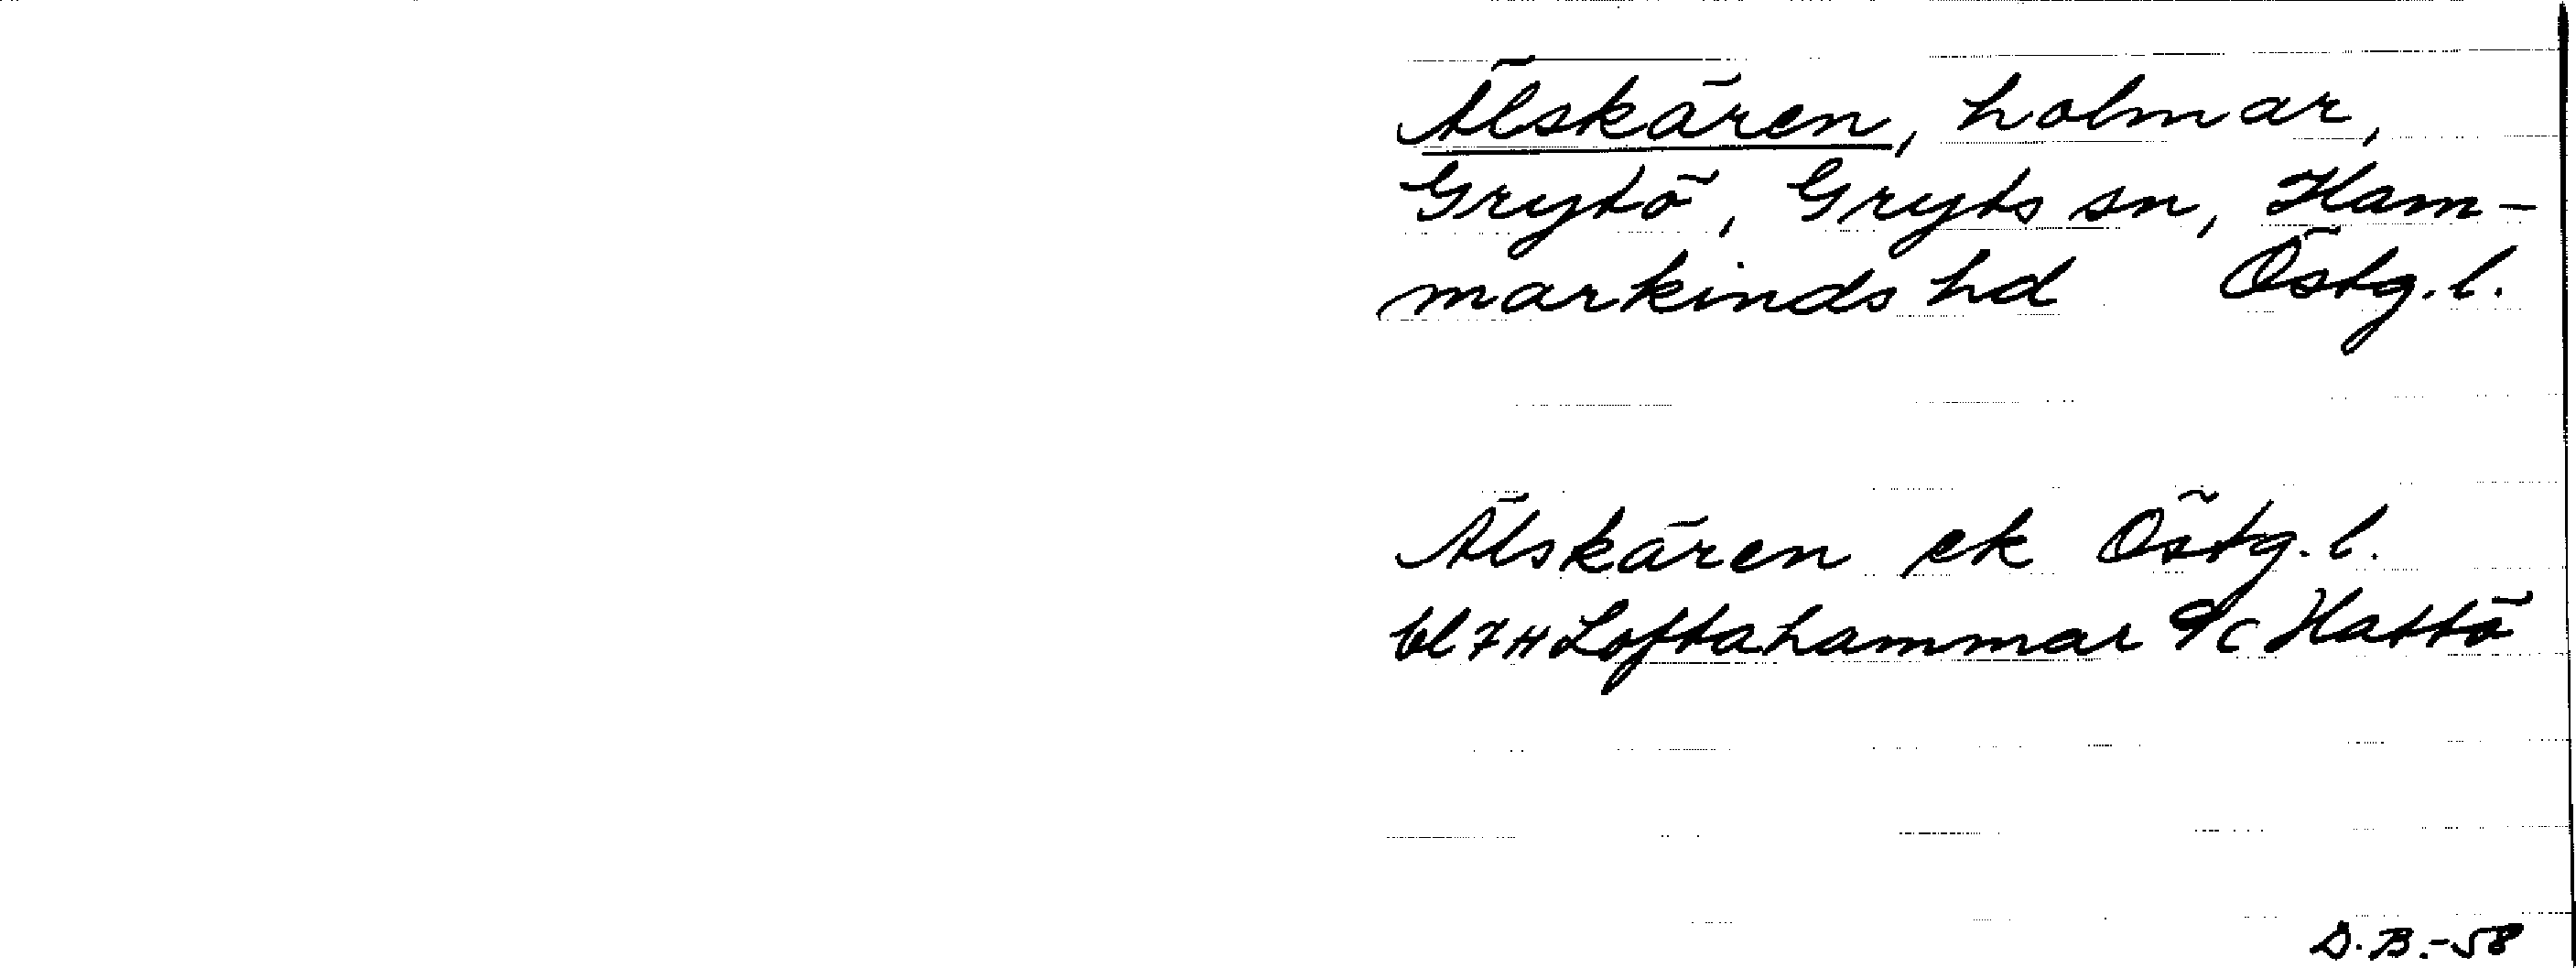 Älskären, holmar,
Grytö, Gryts sn, Ham-
markinds hd Östg. l.
Älskären ek Östg. l.
bl 7H Loftahammar 9c Hattö
D.B.-58